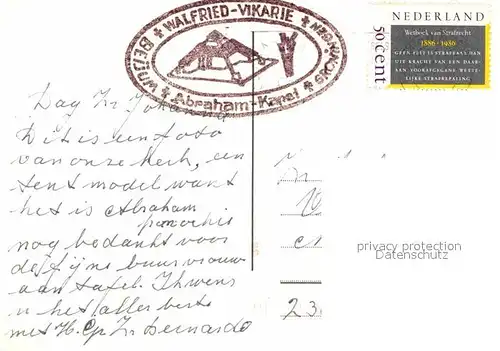 WALFRIED-VIKARIE
Abraham-Kapel
NEDERLAND
50 cent
Wetboek van Strafrecht
1886 - 1986
GEEN FEIT IS STRAFBAAR DAN
UIT KRACHT VAN EEN DAAR-
AAN VOORAFGEGANE WETTE-
LIJKE STRAFBEPALING
Dag Zr Johanna
Dit is een foto
van onze kerk, een
tent model want
het is Abraham
parochie
nog bedankt voor
de fijne buurvrouw
aan tafel. Ik wens
u het aller beste
met H. Gr Zr Bernardo
23.
privacy protection
Datenschutz